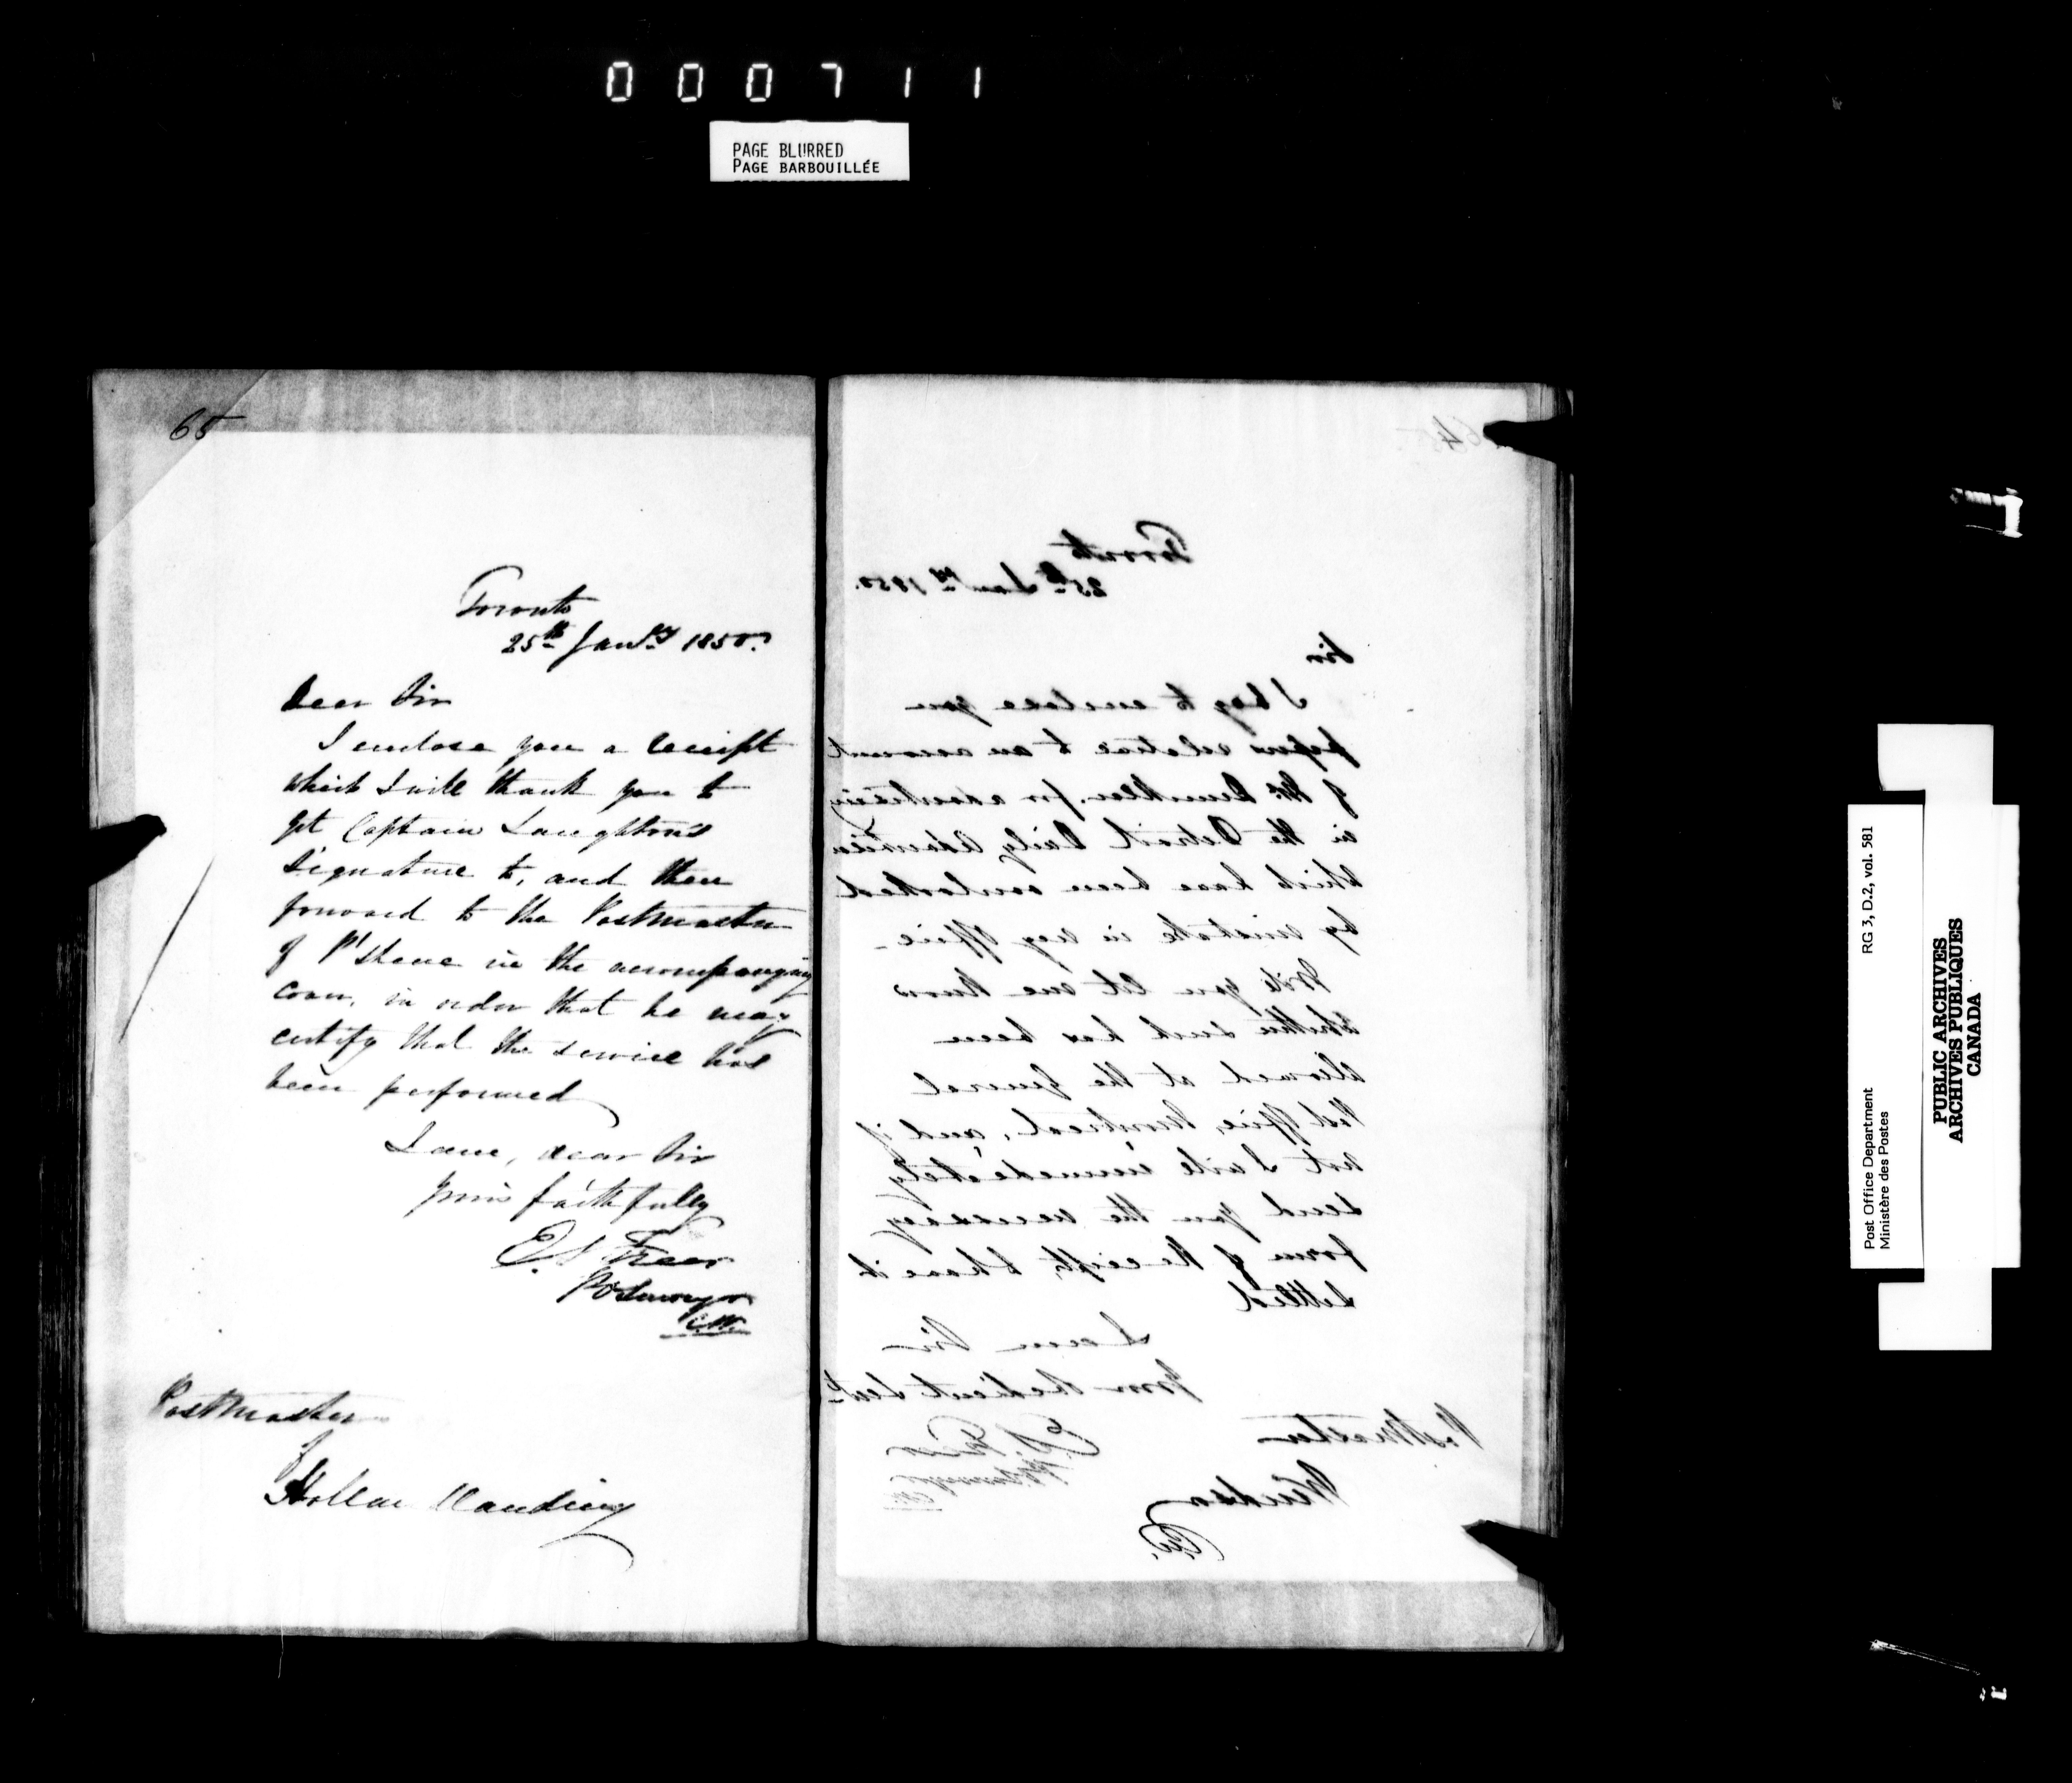 000711
PAGE BLURRED
PAGE BARBOUILLÉE
65
Toronto
25th Jany 1850.
Dear Sir
I enclose you a Receipt
which I will thank you to
get Captain Laughton's
Signature to, and then
forward to the Postmaster
of Pt Stene in the accompanying
cover, in order that he may
certify that the service has
been performed
I am, dear Sir
yours faithfully
E. S. Freer
PO Surveyor
CW.
Postmaster
of
Holland Landing
64
Toronto
25th Jany 1850.
Sir
I beg to enclose you
papers relative to an account
of Mr for advertising
in the Detroit Daily Advertiser
which have been overlooked
by mistake in my office_
Will you let me know
whether such has been
allowed at the General
Post Office, Montreal, and if
not I will immediately
send you the necessary
form of Receipt, & have it
settled
I am Sir
Your Obedient Servt
E. S. Freer
PO Surveyor
CW.
Postmaster
Windsor
CW.
Post Office Department RG 3, D.2, vol. 581
Ministère des Postes
PUBLIC ARCHIVES
ARCHIVES PUBLIQUES
CANADA